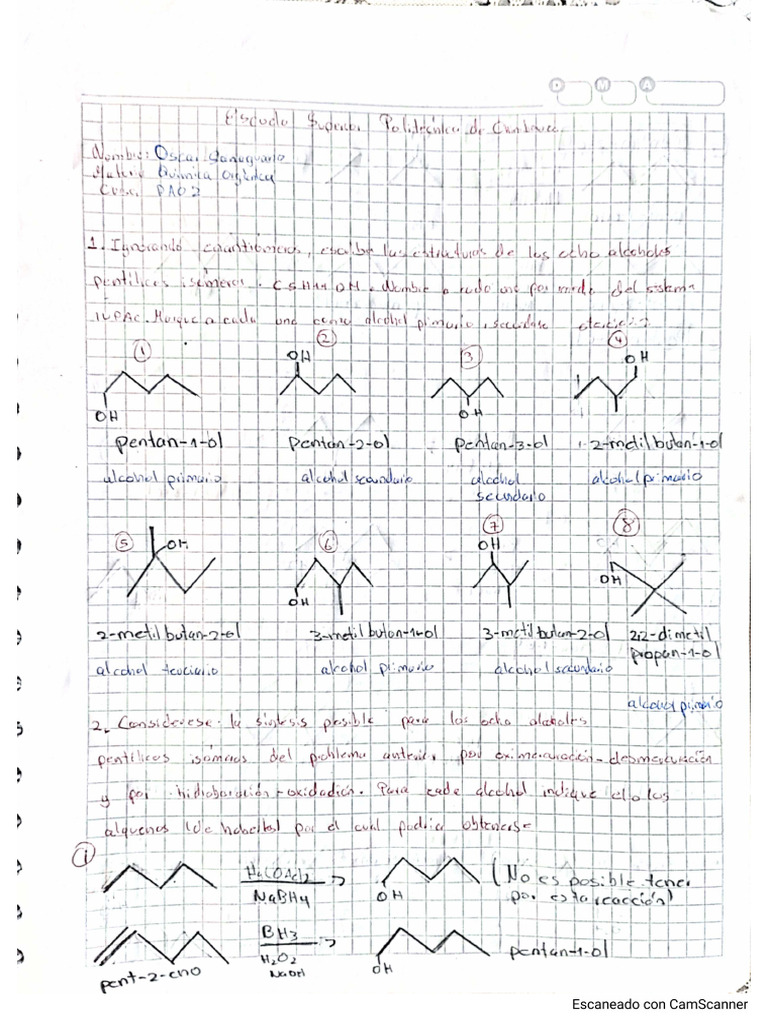 D M A
Escuela Superior Politécnica de Chimborazo
Nombre: Oscar
Materia: Química Orgánica
Curso: PAO 2
1. Ignorando enantiómeros, escriba las estructuras de los ocho alcoholes
pentílicos isómeros. C5H11OH. Nombre a cada uno por medio del sistema
IUPAC. Marque a cada uno como alcohol primario, secundario o terciario
1 2 3 4
OH OH OH OH
pentan-1-ol pentan-2-ol pentan-3-ol 2-metil butan-1-ol
alcohol primario alcohol secundario alcohol secundario alcohol primario
5 6 7 8
OH OH OH OH
2-metil butan-2-ol 3-metil butan-1-ol 3-metil butan-2-ol 2,2-dimetil
propan-1-ol
alcohol terciario alcohol primario alcohol secundario
alcohol primario
2. Considerese la sintesis posible para los ocho alcoholes
pentílicos isómeros del problema anterior por oximercuración-desmercuración
y por hidroboración-oxidación. Para cada alcohol indique el o los
alquenos (de haberlos) por el cual podria obtenerse
1
Hg(OAc)2
NaBH4
OH
(No es posible tener
por esta reacción)
BH3
H2O2
NaOH
OH
pentan-1-ol
pent-2-eno
Escaneado con CamScanner